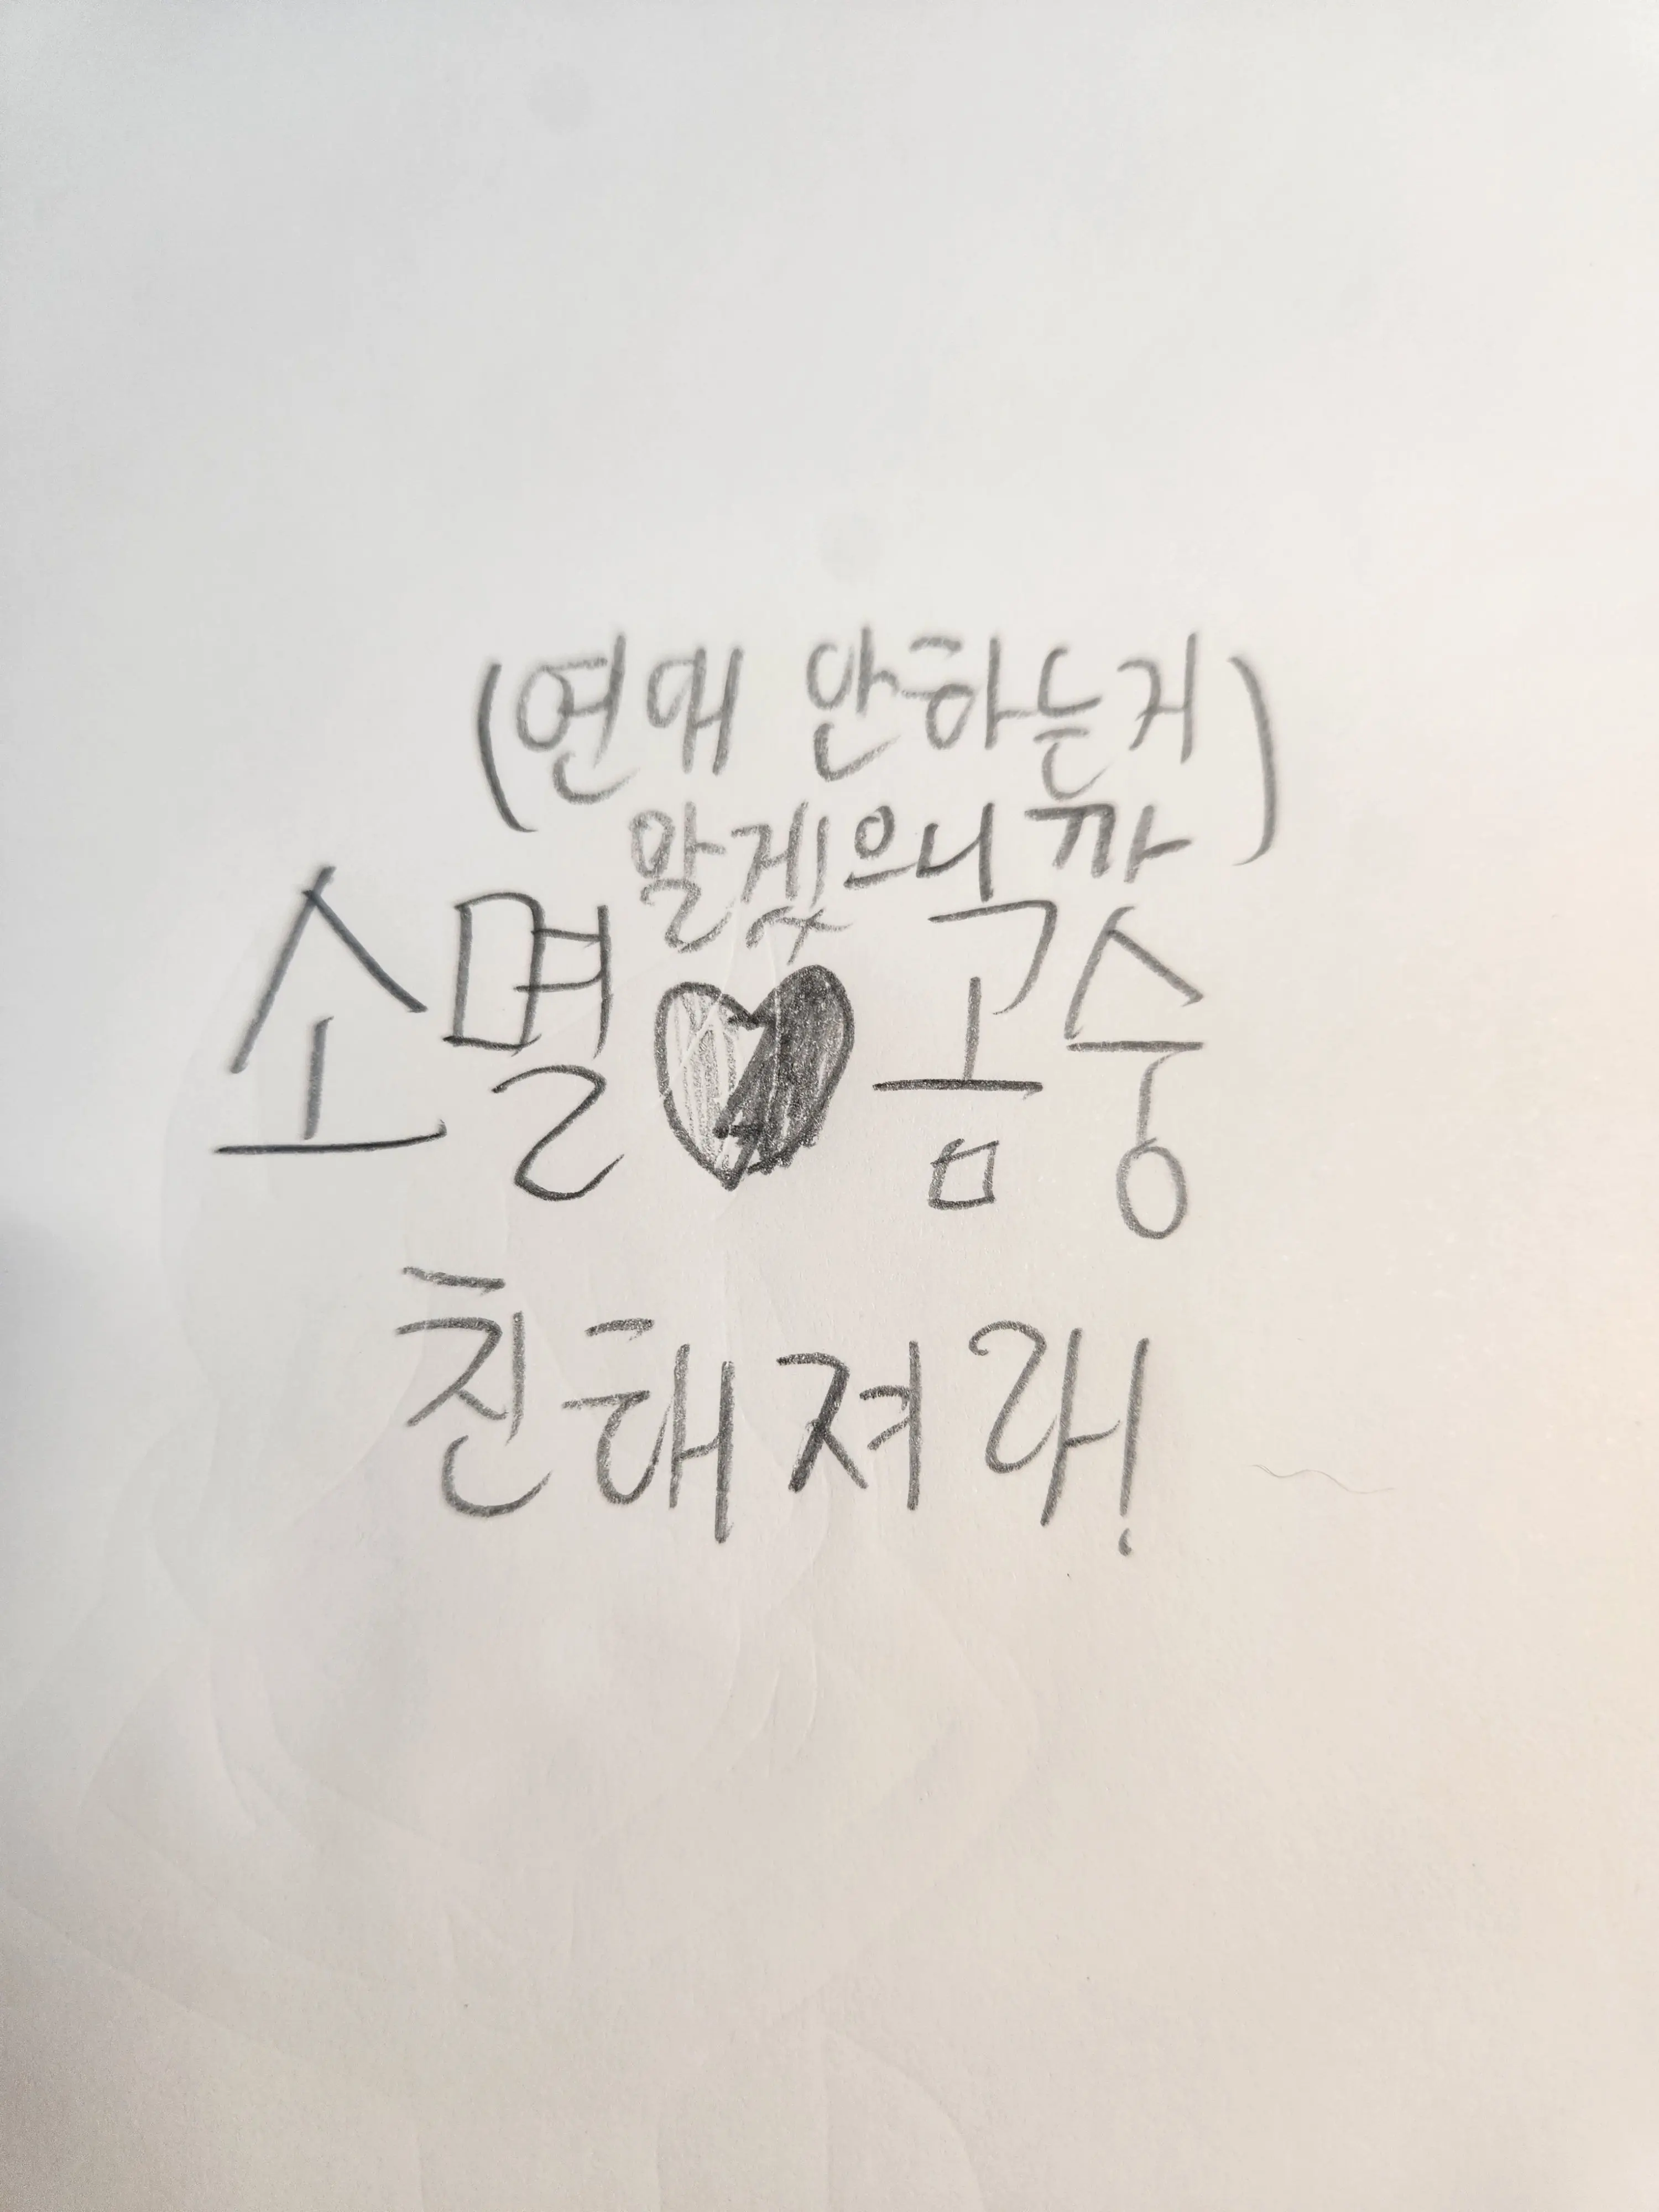 (연애 안하는거
말겠으니까)
소멸🖤곰숭
친해져라!